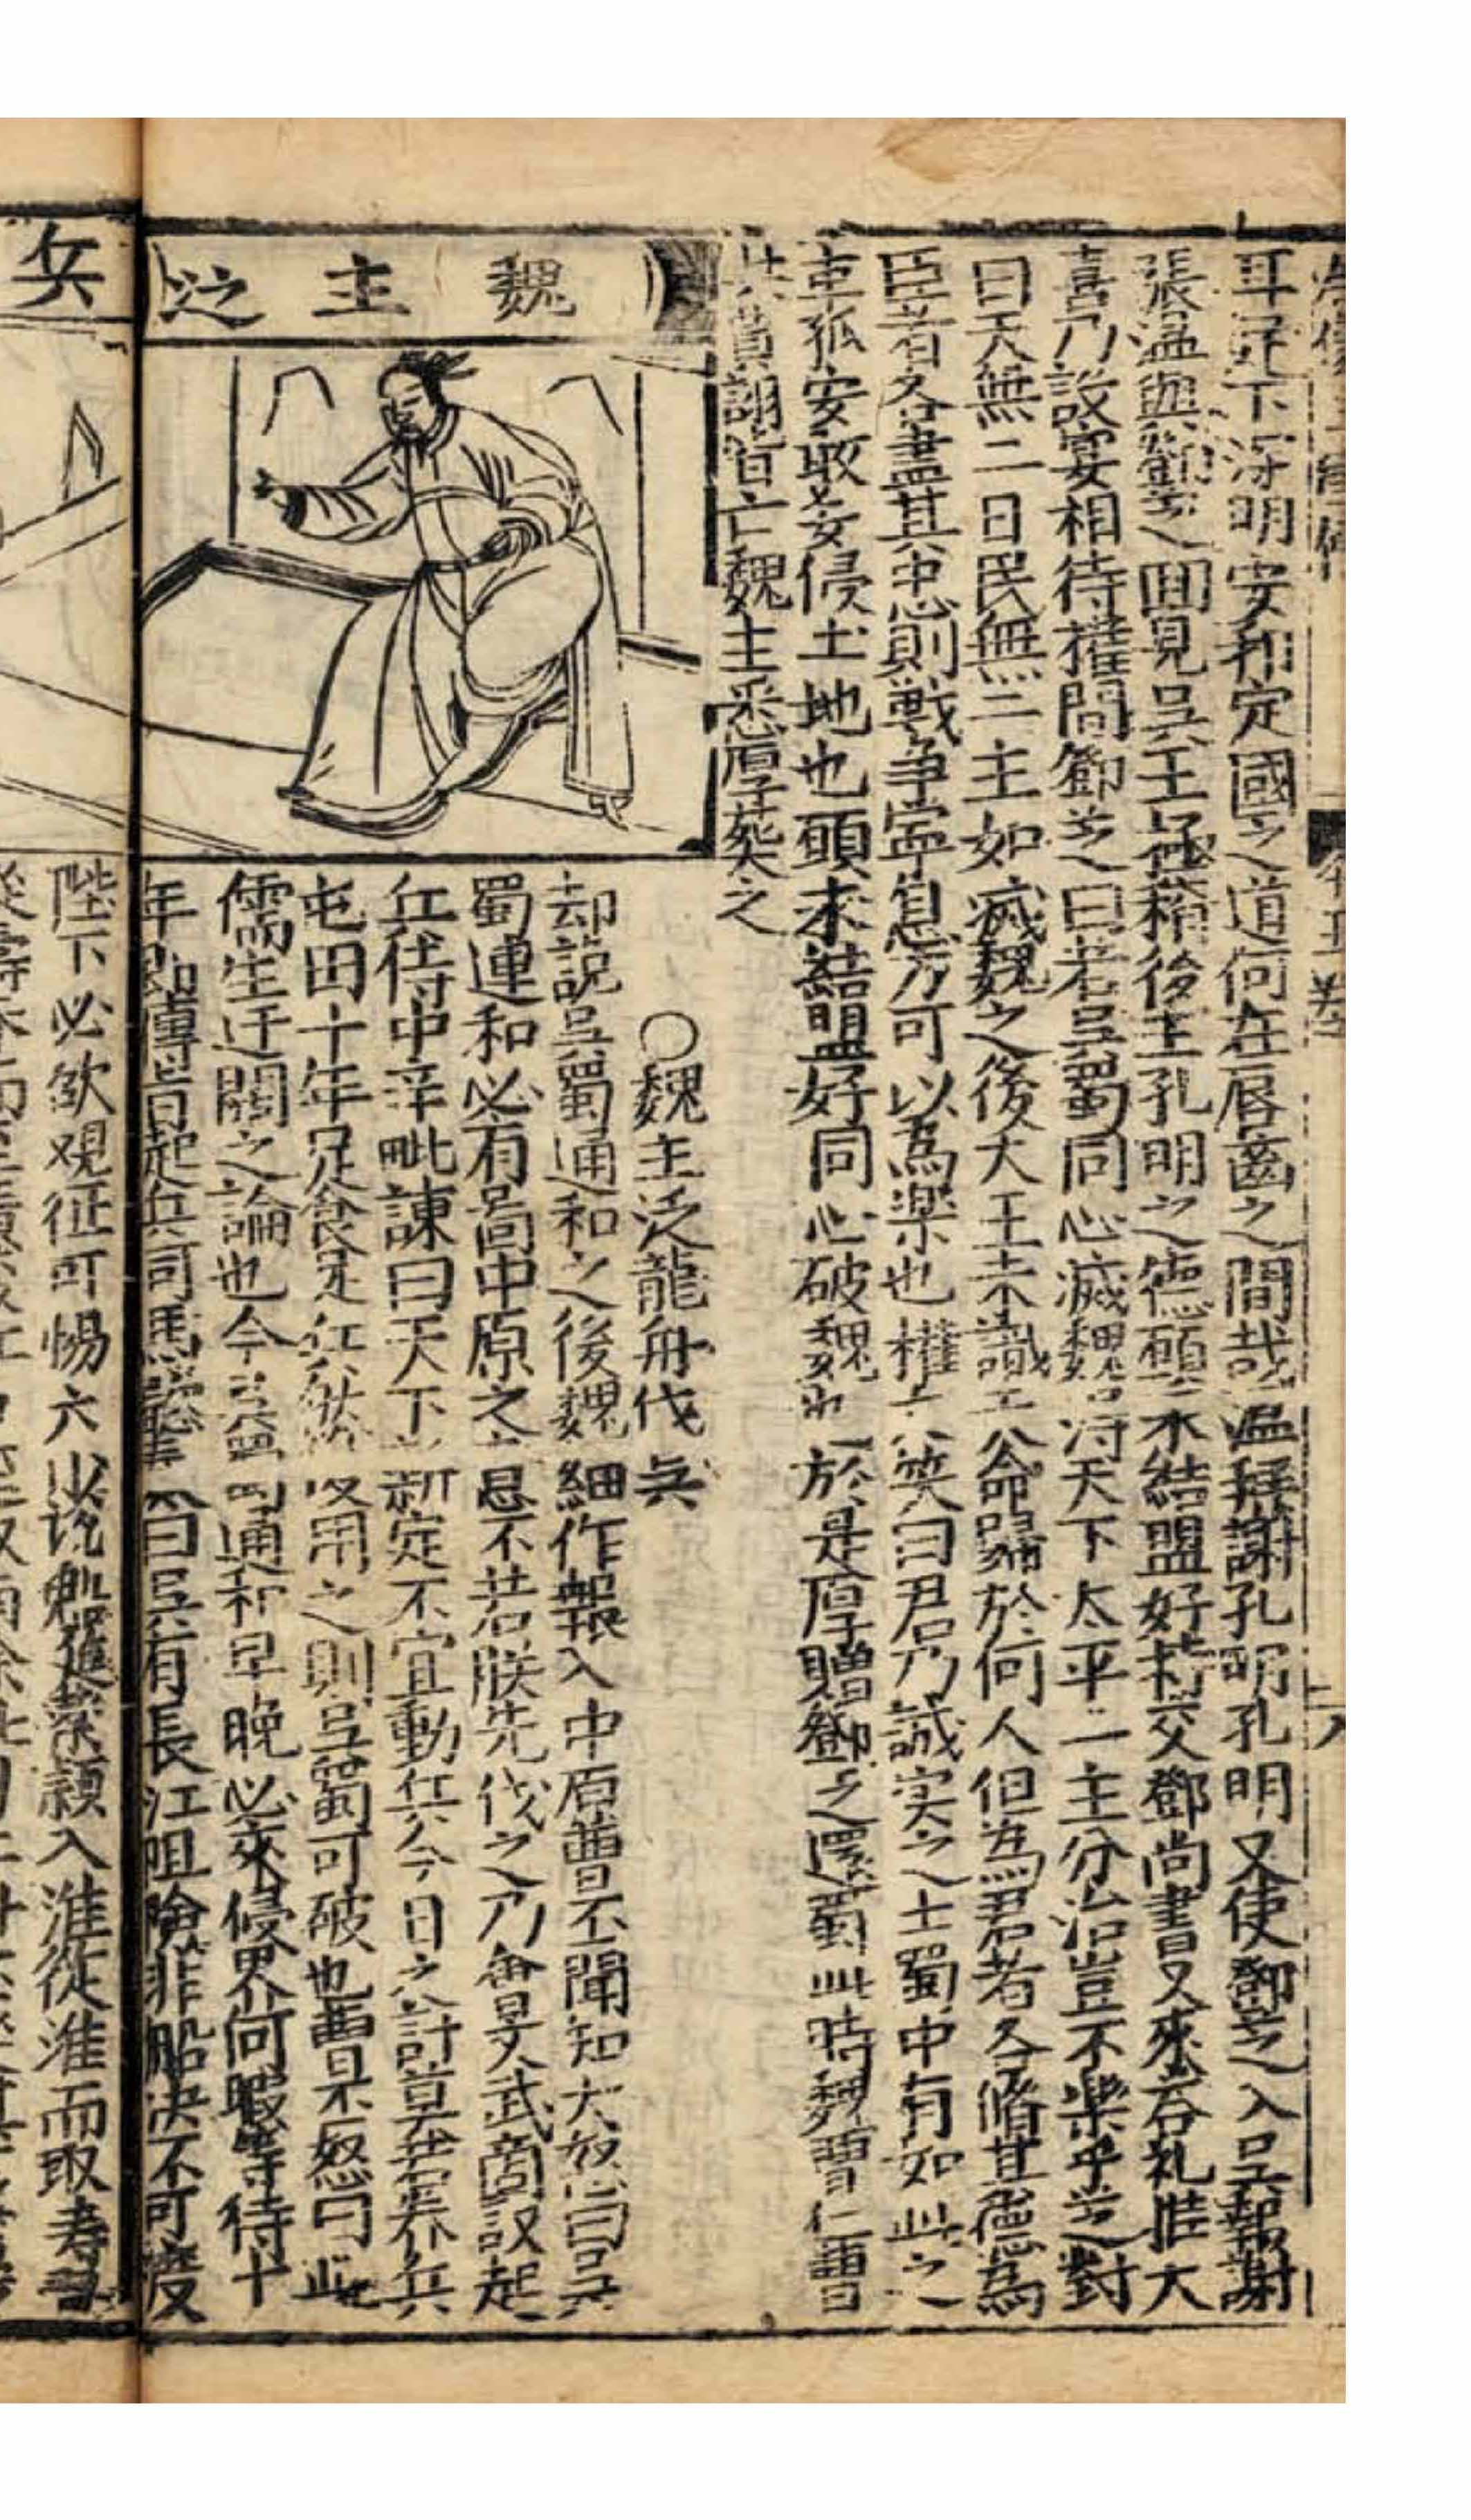 耳足下深明安邦定國之道何在唇齒之間哉溫拜謝孔明孔明又使鄧芝入吳報謝
張溫與鄧芝囬見吳王極稱後主孔明之德願求結盟好差鄧尚書又來荅礼權大
喜乃設宴相待權問鄧芝曰若吳蜀同心滅魏得天下太平二主分治豈不樂乎芝對
曰天無二日民無二主如滅魏之後大王未識天命歸於何人但為君者各脩其德為
臣者各盡其忠則戰爭寧息方可以為楽也權大笑曰君乃誠实之士蜀中有如此之
士孤安敢妄侵土地也願求結盟好同心破魏於是厚贈鄧芝還蜀此時魏曹仁曹
洪賈詡皆亡魏主悉厚葬之
○魏主泛龍舟伐兵
魏主泛
却說吳蜀通和之後魏細作報入中原曹丕聞知大怒曰吳
蜀連和必有圖中原之意不若朕先伐之乃會文武商議起
兵侍中辛毗諫曰天下新定不宜動兵今日之計莫若养兵
屯田十年足食足兵然後用之則吳蜀可破也曹丕怒曰此
儒生迂闊之論也今吳蜀通和早晚必來侵界何暇等待十
年即傳旨起兵司馬懿曰吳有長江咀險非船决不可渡
兵
陛下必欲親征可 入淮從淮而取壽